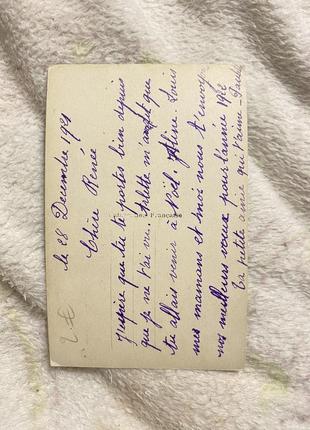 le 28 Decembre 1921
Chère Renée
J'espère que tu te portes bien depuis
que je ne t'ai vu. Arlette m'a dit que
tu allais venir à Noël. Aline. Louis
mes mamans et moi nous t'envoy
nos meilleurs vœux pour l'année 1922
Ta petite amie qui t'aime
Française